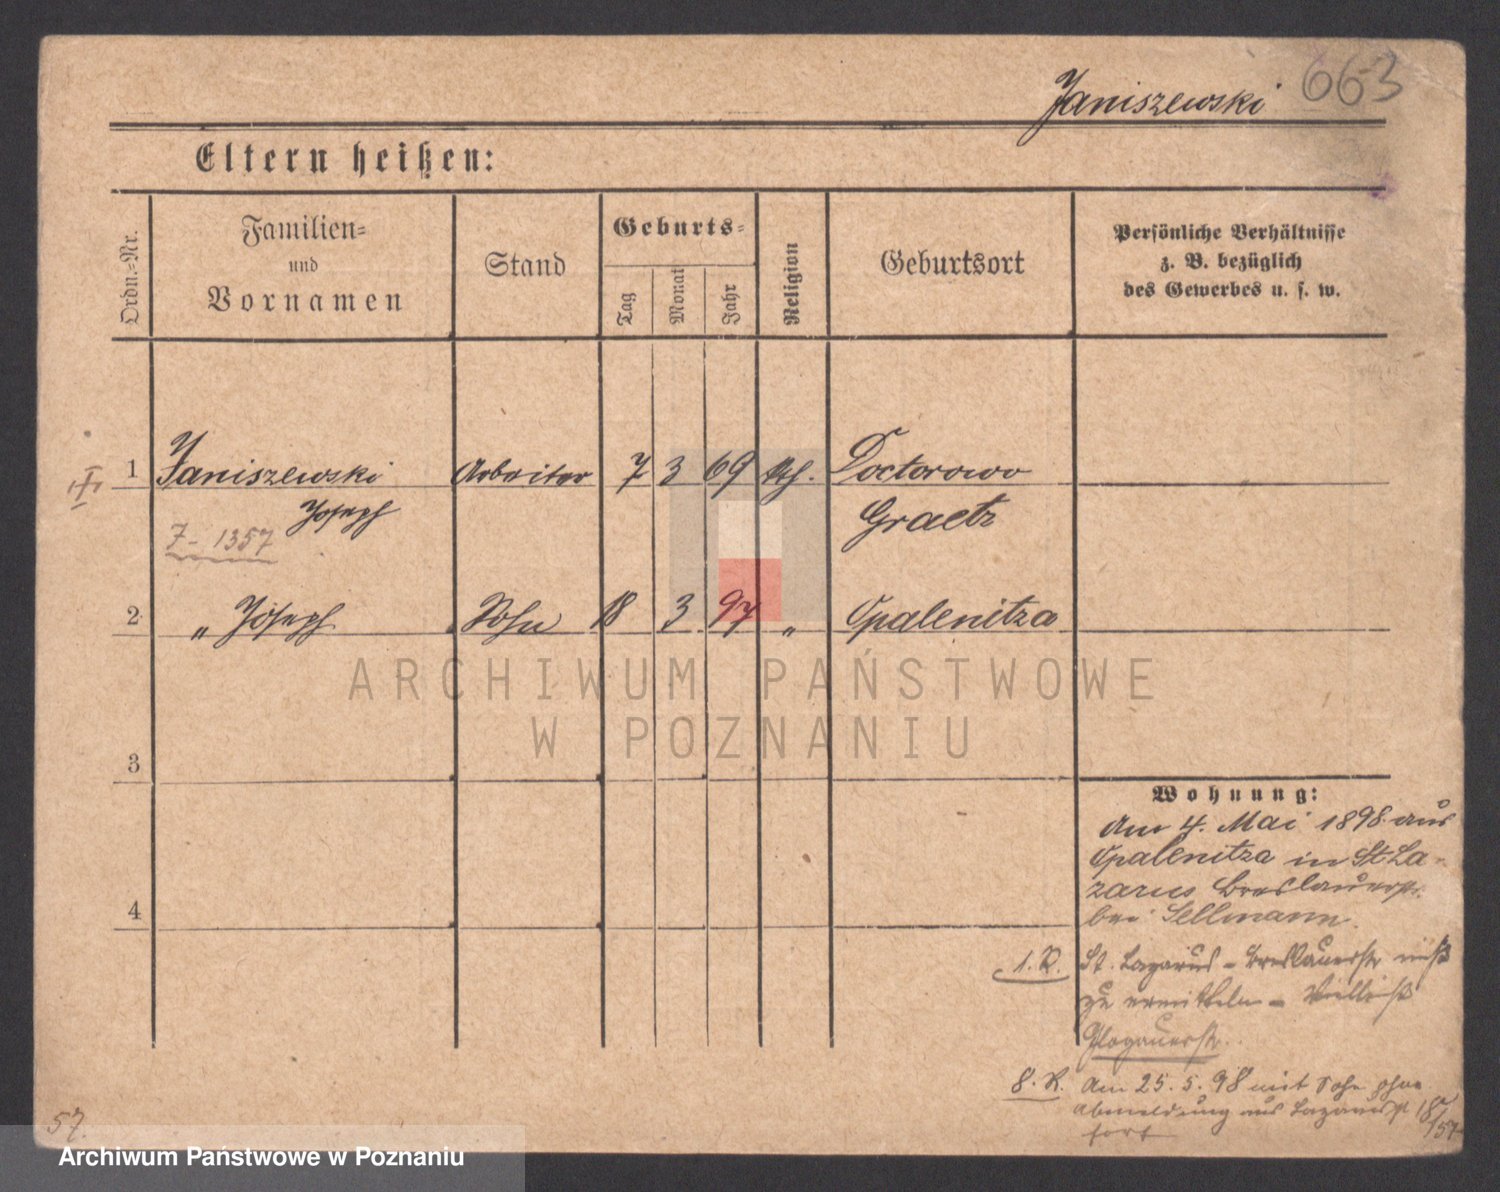 663
Janiszewski
Eltern heißen:
Ordn.-Nr.
Familien-
und
Vornamen
Stand
Geburts-
Tag
Monat
Jahr
Religion
Geburtsort
Persönliche Verhältnisse
z. B. bezüglich
des Gewerbes u. s. w.
1 Janiszewski Arbeiter 7 3 69 kth. Doctorowo
Joseph Graetz
7- 1357
2 " Joseph Sohn 18 3 97 " Opalenitza
ARCHIWUM PAŃSTWOWE
W POZNANIU
3
Wohnung:
Am 4. Mai 1898 aus
Opalenitza in St La-
zarus Breslauerstr.
bei Sellmann.
4
1. R. St. Lazarus – Breslauerstr nicht
zu ermitteln – Vielleicht
Glogauerstr.
8. R. Am 25.5.98 mit Sohn ohne
Abmeldung aus Lazarus
fort
57.
Archiwum Państwowe w Poznaniu